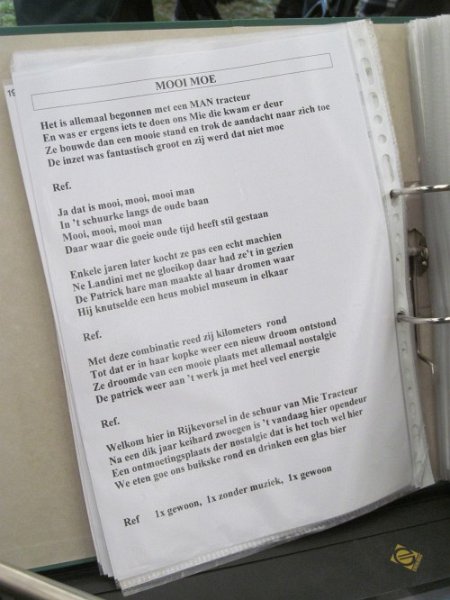 19
MOOI MOE
Het is allemaal begonnen met een MAN tracteur
En was er ergens iets te doen ons Mie die kwam er deur
Ze bouwde dan een mooie stand en trok de aandacht naar zich toe
De inzet was fantastisch groot en zij werd dat niet moe
Ref.
Ja dat is mooi, mooi, mooi man
In 't schuurke langs de oude baan
Mooi, mooi, mooi man
Daar waar die goeie oude tijd heeft stil gestaan
Enkele jaren later kocht ze pas een echt machien
Ne Landini met ne gloeikop daar had ze't in gezien
De Patrick hare man maakte al haar dromen waar
Hij knutselde een heus mobiel museum in elkaar
Ref.
Met deze combinatie reed zij kilometers rond
Tot dat er in haar kopke weer een nieuw droom ontstond
Ze droomde van een mooie plaats met allemaal nostalgie
De patrick weer aan 't werk ja met heel veel energie
Ref.
Welkom hier in Rijkevorsel in de schuur van Mie Tracteur
Na een dik jaar keihard zwoegen is 't vandaag hier opendeur
Een ontmoetingsplaats der nostalgie dat is het toch wel hier
We eten goe ons buikske rond en drinken een glas bier
Ref 1x gewoon, 1x zonder muziek, 1x gewoon